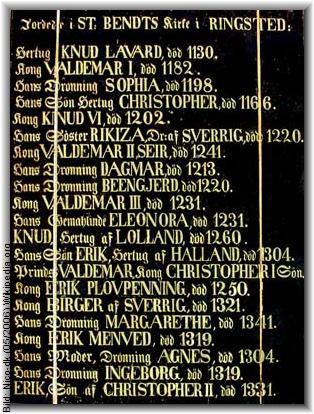 Jordede i ST. BENDTS Kirke i RINGSTED:
Hertug KNUD LAVARD, död 1130.
Kong VALDEMAR I, död 1182.
Hans Dronning SOPHIA, död 1198.
Hans Sön Hertug CHRISTOPHER, död 1166.
Kong KNUD VI, död 1202.
Hans Söster RIKIZA, Dr: af SVERRIG, död 1220.
Kong VALDEMAR II, SEIR, död 1241.
Hans Dronning DAGMAR, död 1213.
Hans Dronning BEENGJERD, död 1220.
Kong VALDEMAR III, död 1231.
Hans Gemahinde ELEONORA, död 1231.
KNUD, Hertug af LOLLAND, död 1260.
Hans Sön ERIK, Hertug af HALLAND, död 1304.
Prinds VALDEMAR, Kong CHRISTOPHER I Sön.
Kong ERIK PLOVPENNING, död 1250.
Kong BIRGER af SVERRIG, död 1321.
Hans Dronning MARGARETHE, död 1341.
Kong ERIK MENVED, död 1319.
Hans Moder, Dronning AGNES, död 1304.
Hans Dronning INGEBORG, död 1319.
ERIK, Sön af CHRISTOPHER II, död 1331.
Bild: Nico-dk (05/2006) Wikipedia.org